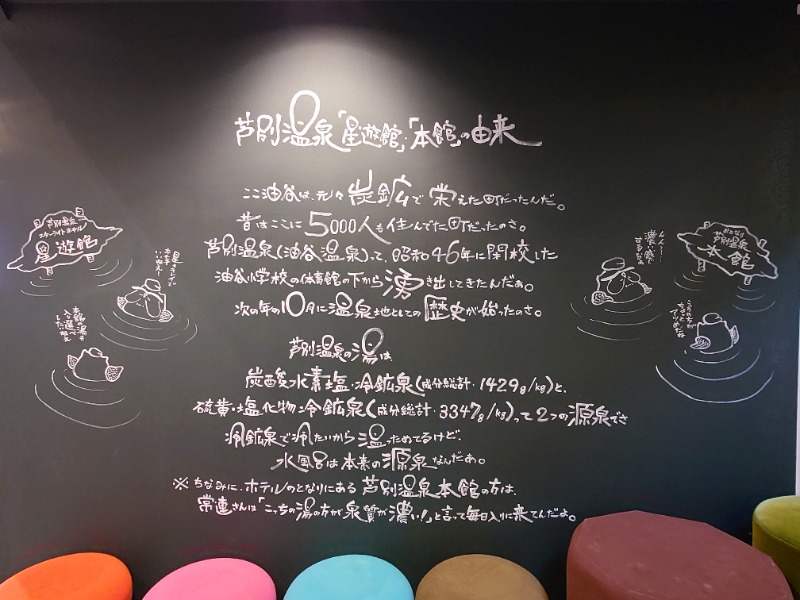 芦別温泉「星遊館」・「本館」の由来
ここ油谷は、元々炭鉱で栄えた町だったんだ。
昔はここに5000人も住んでた町だったのさ。
芦別温泉(油谷温泉)って、昭和46年に閉校した
油谷小学校の体育館の下から湧き出してきたんだぁ。
次の年の10月に温泉地としての歴史が始ったのさ。
芦別温泉の湯は
炭酸水素塩・冷鉱泉(成分総計・1429g/kg)と、
硫黄・塩化物冷鉱泉(成分総計・3347g/kg)って2つの源泉でさ
冷鉱泉で冷たいから温ためてるけど、
水風呂は本来の源泉なんだぁ。
※ちなみに、ホテルのとなりにある芦別温泉本館の方は、
常連さんは「こっちの湯の方が泉質が濃い!」と言って毎日入りに来てんだよ。
芦別温泉
スターライトホテル
星遊館
芦別温泉
本館